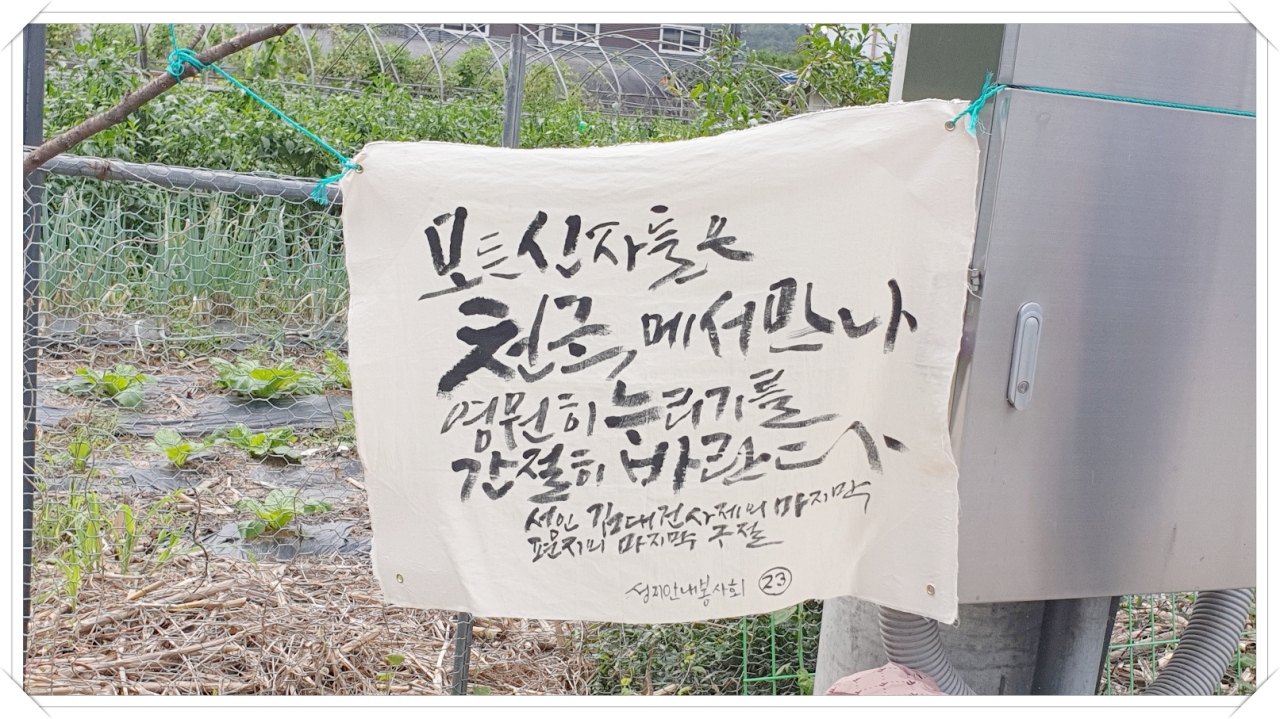 모든 신자들은
천국에서 만나
영원히 누리기를
간절히 바란다
성인 김대건 사제의 마지막
편지의 마지막 구절
성지안내봉사회 23